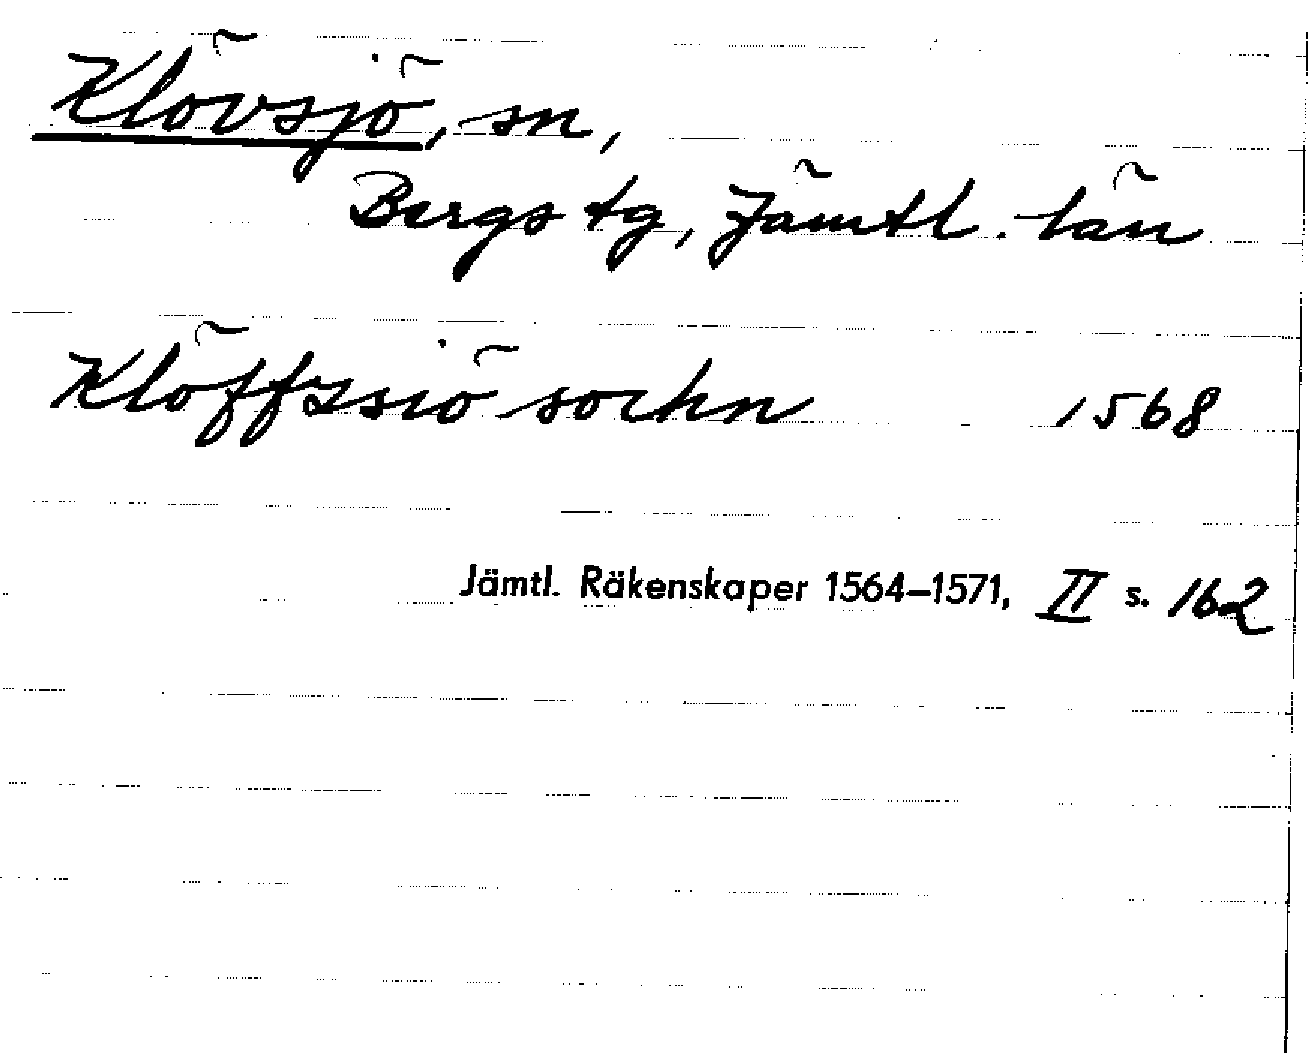 Klövsjö, sn,
Bergs tg, Jämtl. län
Klöffzsiö sochn 1568
Jämtl. Räkenskaper 1564–1571, II s. 162